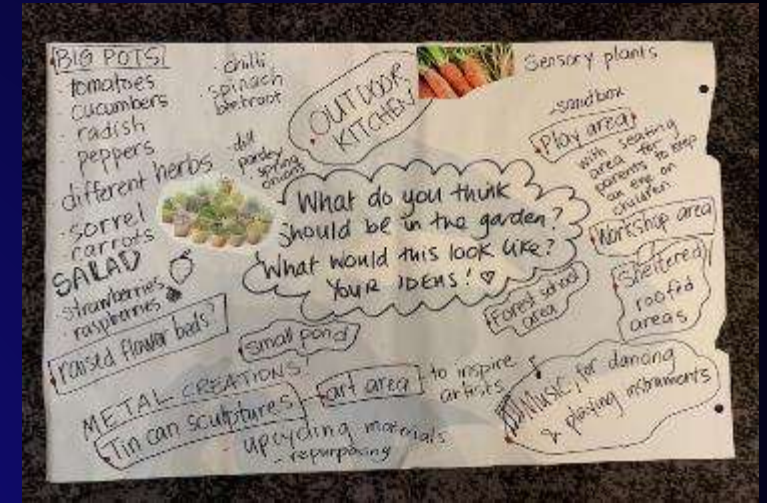 BIG POTS
tomatoes
cucumbers
· radish
· peppers
· different herbs
· sorrel
carrots
SALAD
· strawberries
· raspberries
raised flower beds?
· chilli
· spinach
beetroot
· dill
parsley
spring
onions
OUTDOOR
KITCHEN
Sensory plants
- sandbox
Play area
with seating
area for
parents to keep
an eye on
children
Workshop area
Sheltered
roofed
areas
What do you think
should be in the garden?
What would this look like?
YOUR IDEAS! ♡
Forest school
area
small pond
METAL CREATIONS!
Tin can sculptures
art area
to inspire
artists
- upcycling materials
- repurposing
Music, for dancing
& playing instruments